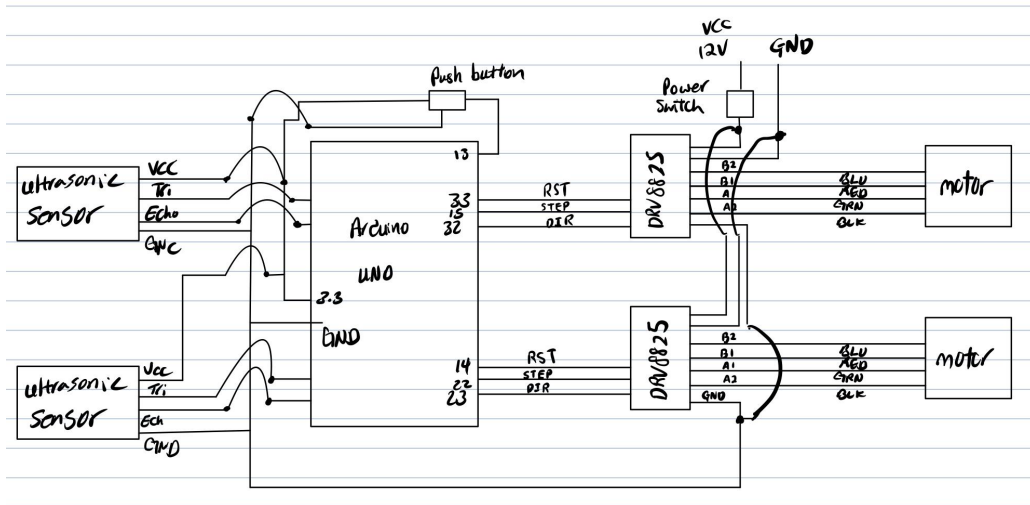 VCC
12V
GND
Push button
Power
Switch
13
ultrasonic
Sensor
VCC
Tri
Echo
GNC
Arduino
UNO
33
15
32
RST
STEP
DIR
DRV8825
B2
B1
A1
A2
BLU
RED
GRN
BLK
motor
3.3
GND
ultrasonic
Sensor
Vcc
Tri
Ech
GND
14
22
23
RST
STEP
DIR
DRV8825
B2
B1
A1
A2
GND
BLU
RED
GRN
BLK
motor